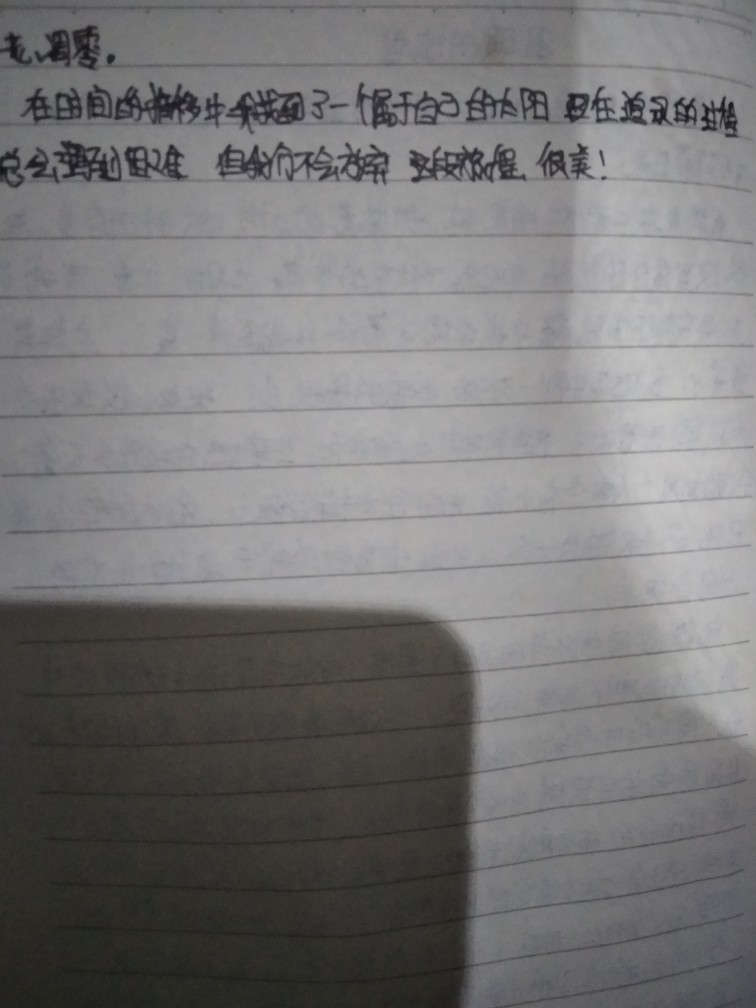 老、凋零。
在时间的推移中我找到了一个属于自己的太阳 要在追寻的过程
总会遇到困难 但我们不会放弃 这段旅程 很美!